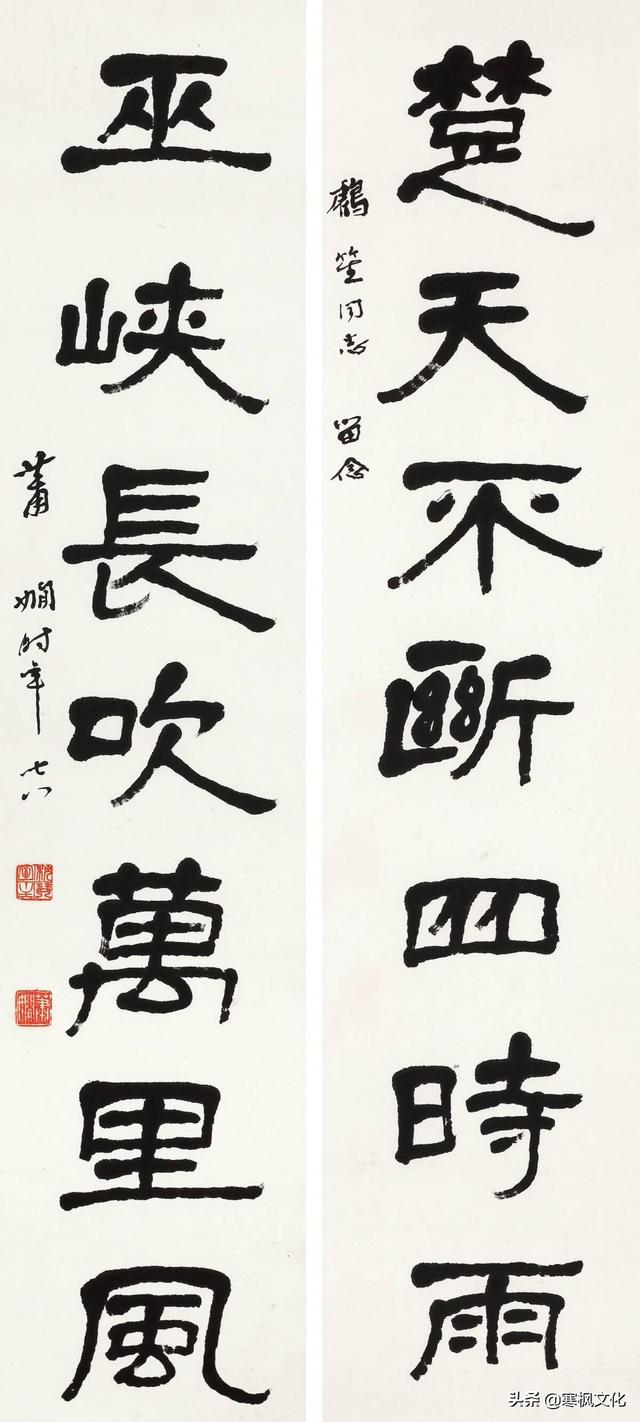 楚天不斷四時雨
鶴笙同志 留念
巫峡長吹萬里風
蕭嫻时年七八
头条 @寒枫文化